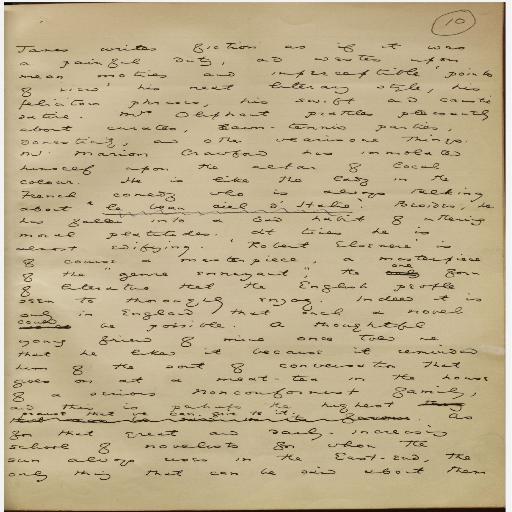 10
James writes fiction as if it was
a painful duty, and wastes upon
mean motives and imperceptible 'points
of view' his neat literary style, his
felicitous phrases, his swift and caustic
satire. Mrs Oliphant prattles pleasantly
about curates, lawn-tennis parties,
domesticity, and other wearisome things.
Mr Marion Crawford has immolated
himself upon the altar of local
colour. He is like the lady in the
French comedy who is always talking
about "le beau ciel d'Italie". Besides, he
has fallen into a bad habit of uttering
moral platitudes. At times he is
almost edifying. 'Robert Elsmere' is
of course a masterpiece, a masterpiece
of the "genre ennuyeux", the one form
of literature that the English people
seem to thoroughly enjoy. Indeed it is
only in England that such a novel
could be possible. A thoughtful
young friend of mine once told me
that he likes it because it reminded
him of the sort of conversation that
goes on at a meat-tea in the house
of a serious Nonconformist family,
and this is perhaps the highest
praise that we can give to it. As
for that great and daily increasing
school of novelists for whom the
sun always rises in the East-end, the
only thing that can be said about them